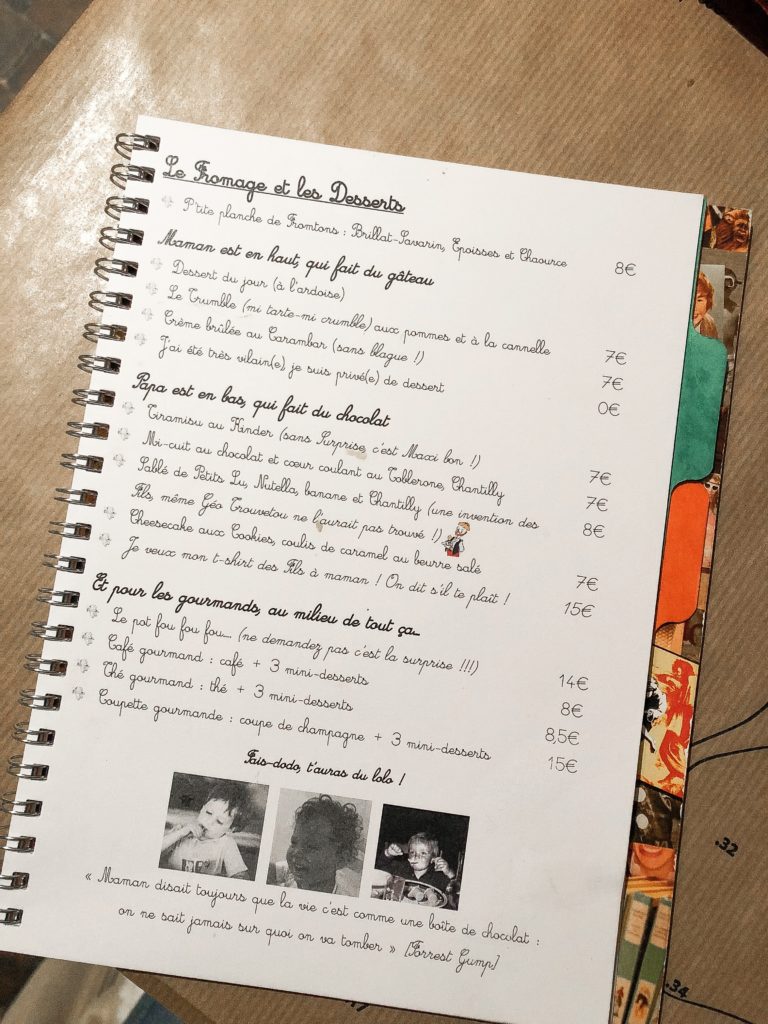 Le Fromage et les Desserts
P'tite planche de Fromtons : Brillat-Savarin, Epoisses et Chaource 8€
Maman est en haut, qui fait du gâteau
Dessert du jour (à l'ardoise)
Le Trumble (mi tarte-mi crumble) aux pommes et à la cannelle 7€
Crème brûlée au Carambar (sans blague !) 7€
J'ai été très vilain(e), je suis privé(e) de dessert 0€
Papa est en bas, qui fait du chocolat
Tiramisu au Kinder (sans Surprise, c'est Maxi bon !) 7€
Mi-cuit au chocolat et cœur coulant au Toblerone, Chantilly 7€
Sablé de Petits Lu, Nutella, banane et Chantilly (une invention des 8€
Fils, même Géo Trouvetou ne l'aurait pas trouvé !)
Cheesecake aux Cookies, coulis de caramel au beurre salé 7€
Je veux mon t-shirt des Fils à maman ! On dit s'il te plaît ! 15€
Et pour les gourmands, au milieu de tout ça...
Le pot fou fou fou.... (ne demandez pas c'est la surprise !!!) 14€
Café gourmand : café + 3 mini-desserts 8€
Thé gourmand : thé + 3 mini-desserts 8,5€
Coupette gourmande : coupe de champagne + 3 mini-desserts 15€
Fais-dodo, t'auras du lolo !
« Maman disait toujours que la vie c'est comme une boîte de chocolat :
on ne sait jamais sur quoi on va tomber » [Forrest Gump]
.32
.34